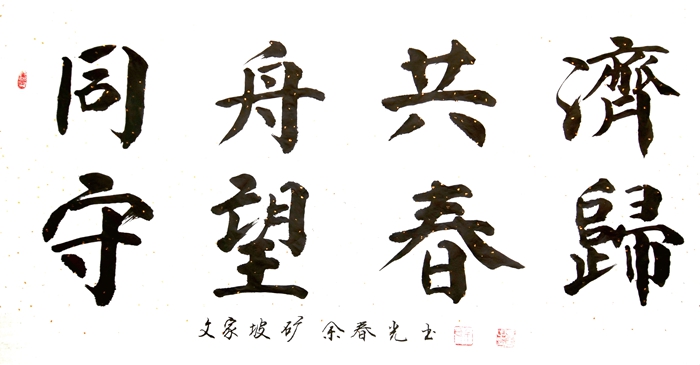 同舟共濟
守望春歸
文家坡矿 余春光书